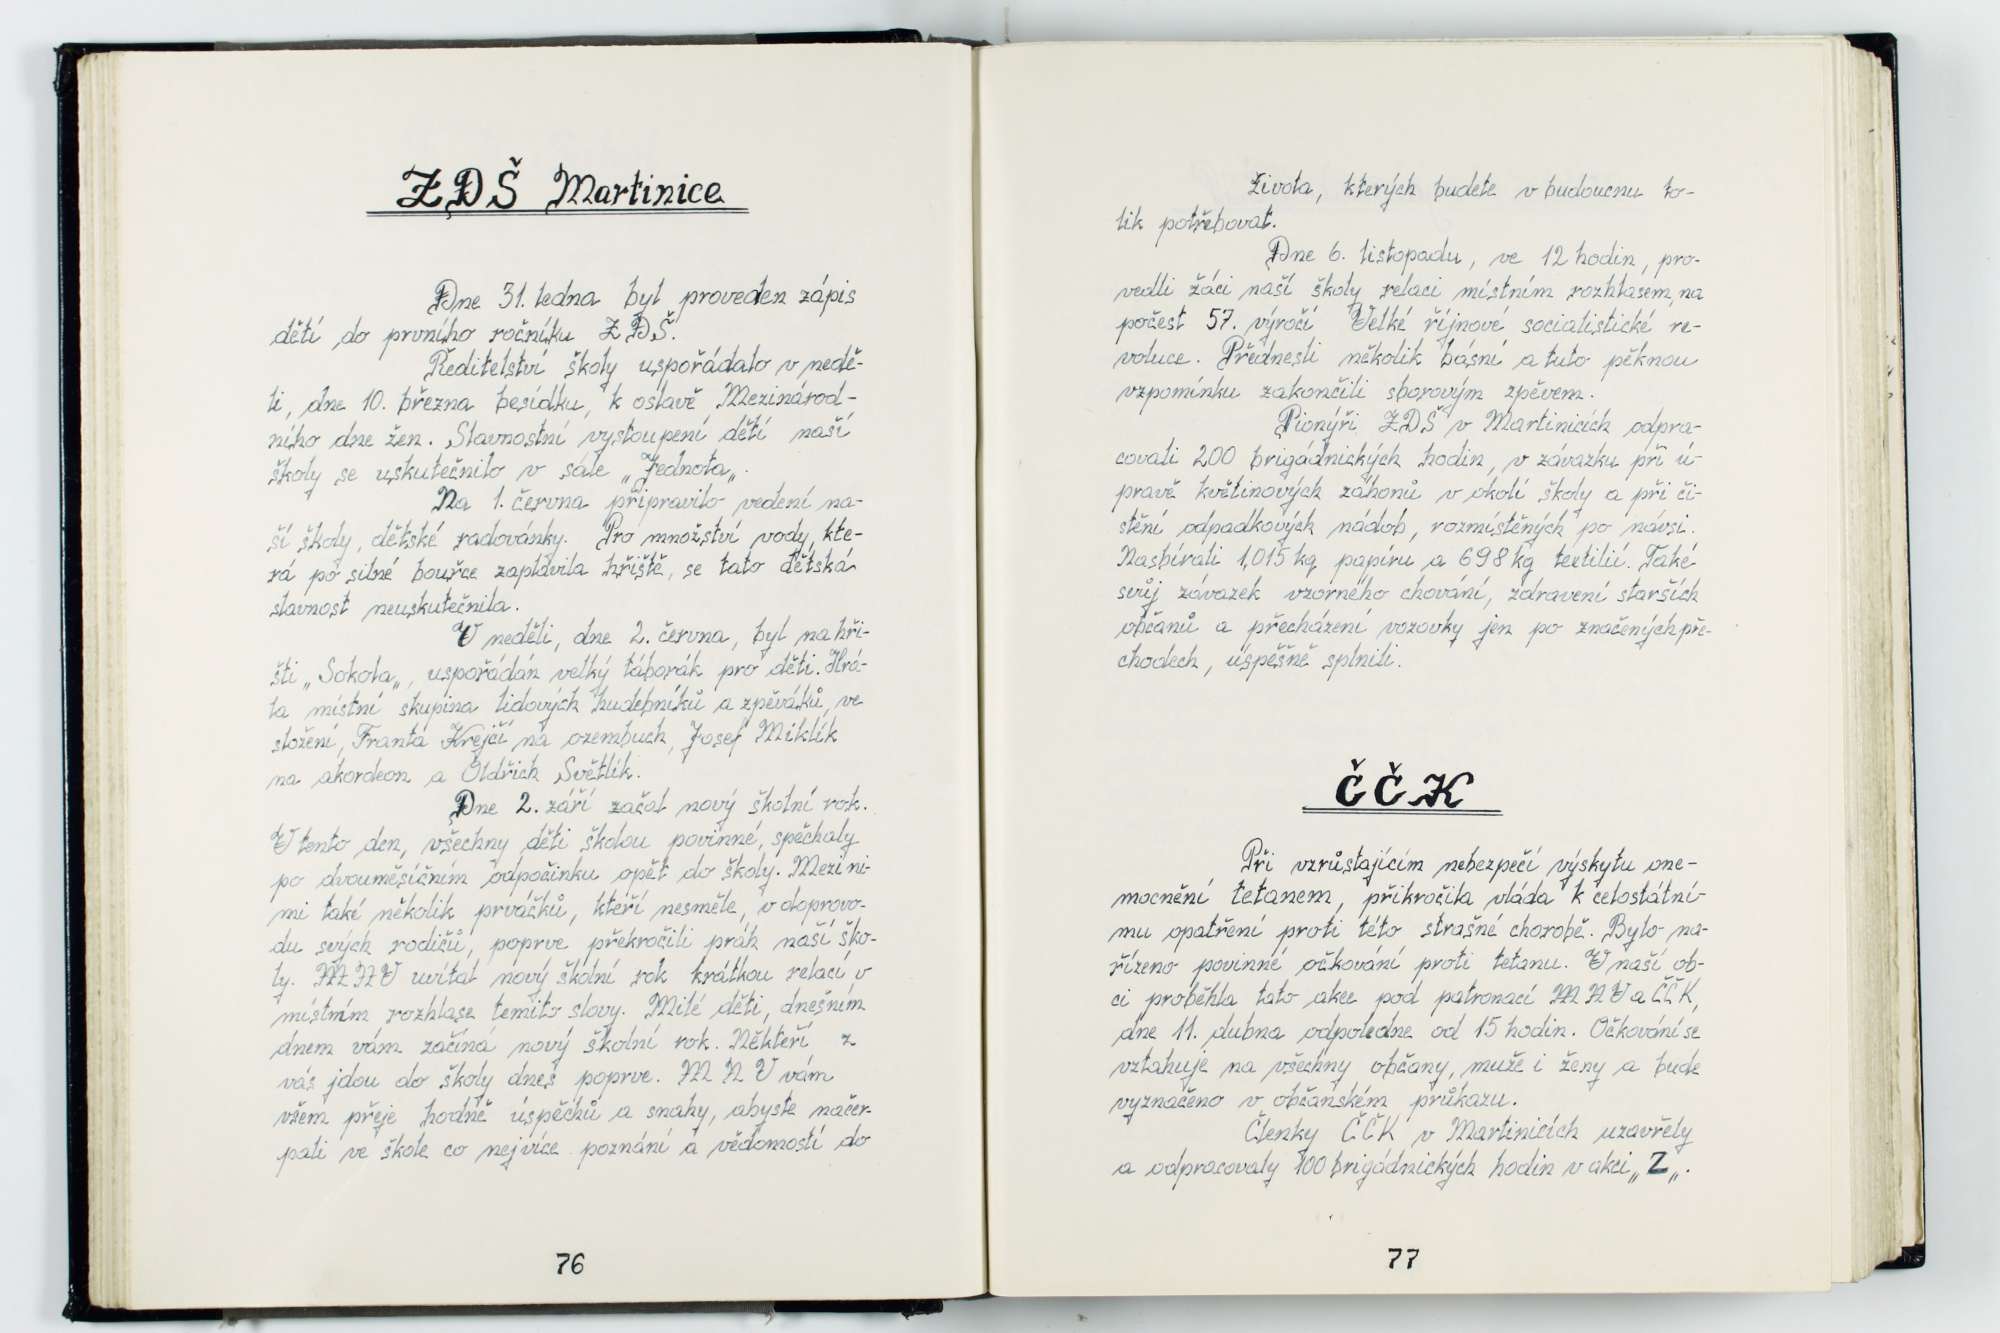 ZDŠ Martinice
Dne 31. ledna byl proveden zápis
dětí do prvního ročníku ZDŠ.
Ředitelství školy uspořádalo v nedě-
li, dne 10. března besídku, k oslavě Mezinárod-
ního dne žen. Slavnostní vystoupení dětí naší
školy se uskutečnilo v sále „Jednota„.
Na 1. června připravilo vedení na-
ší školy, dětské radovánky. Pro množství vody, kte-
rá po silné bouřce zaplavila hřiště, se tato dětská
slavnost neuskutečnila.
V neděli, dne 2. června, byl na hři-
šti „Sokola„, uspořádán velký táborák pro děti. Hrá-
la místní skupina lidových hudebníků a zpěváků, ve
složení, Franta Krejčí na ozembuch, Josef Miklík
na akordeon a Oldřich Světlík.
Dne 2. září začal nový školní rok.
V tento den, všechny děti školou povinné, spěchaly
po dvouměsíčním odpočinku opět do školy. Mezi ni-
mi také několik prváčků, kteří nesměle, v doprovo-
du svých rodičů, poprve překročili práh naší ško-
ly. MNV uvítal nový školní rok krátkou relací v
místním rozhlase temito slovy. Milé děti, dnešním
dnem vám začíná nový školní rok. Někteří z
vás jdou do školy dnes poprve. MNV vám
všem přeje hodně úspěchů a snahy, abyste načer-
pali ve škole co nejvíce poznání a vědomostí do
76
života, kterých budete v budoucnu to-
lik potřebovat.
Dne 6. listopadu, ve 12 hodin, pro-
vedli žáci naší školy relaci místním rozhlasem, na
počest 57. výročí Velké říjnové socialistické re-
voluce. Přednesli několik básní a tuto pěknou
vzpomínku zakončili sborovým zpěvem.
Pionýři ZDŠ v Martinicích odpra-
covali 200 brigádnických hodin, v závazku při ú-
pravě květinových záhonů v okolí školy a při či-
stění odpadkových nádob, rozmístěných po návsi.
Nasbírali 1,015 kg papíru a 698 kg textilií. Také
svůj závazek vzorného chování, zdravení starších
občanů a přecházení vozovky jen po značených pře-
chodech, úspěšně splnili.
ČČK
Při vzrůstajícím nebezpečí výskytu one-
mocnění tetanem, přikročila vláda k celostátní-
mu opatření proti této strašné chorobě. Bylo na-
řízeno povinné očkování proti tetanu. V naší ob-
ci proběhla tato akce pod patronací MNV a ČČK,
dne 11. dubna odpoledne od 15 hodin. Očkování se
vztahuje na všechny občany, muže i ženy a bude
vyznačeno v občanském průkazu.
Členky ČČK v Martinicích uzavřely
a odpracovaly 100 brigádnických hodin v akci „Z„.
77